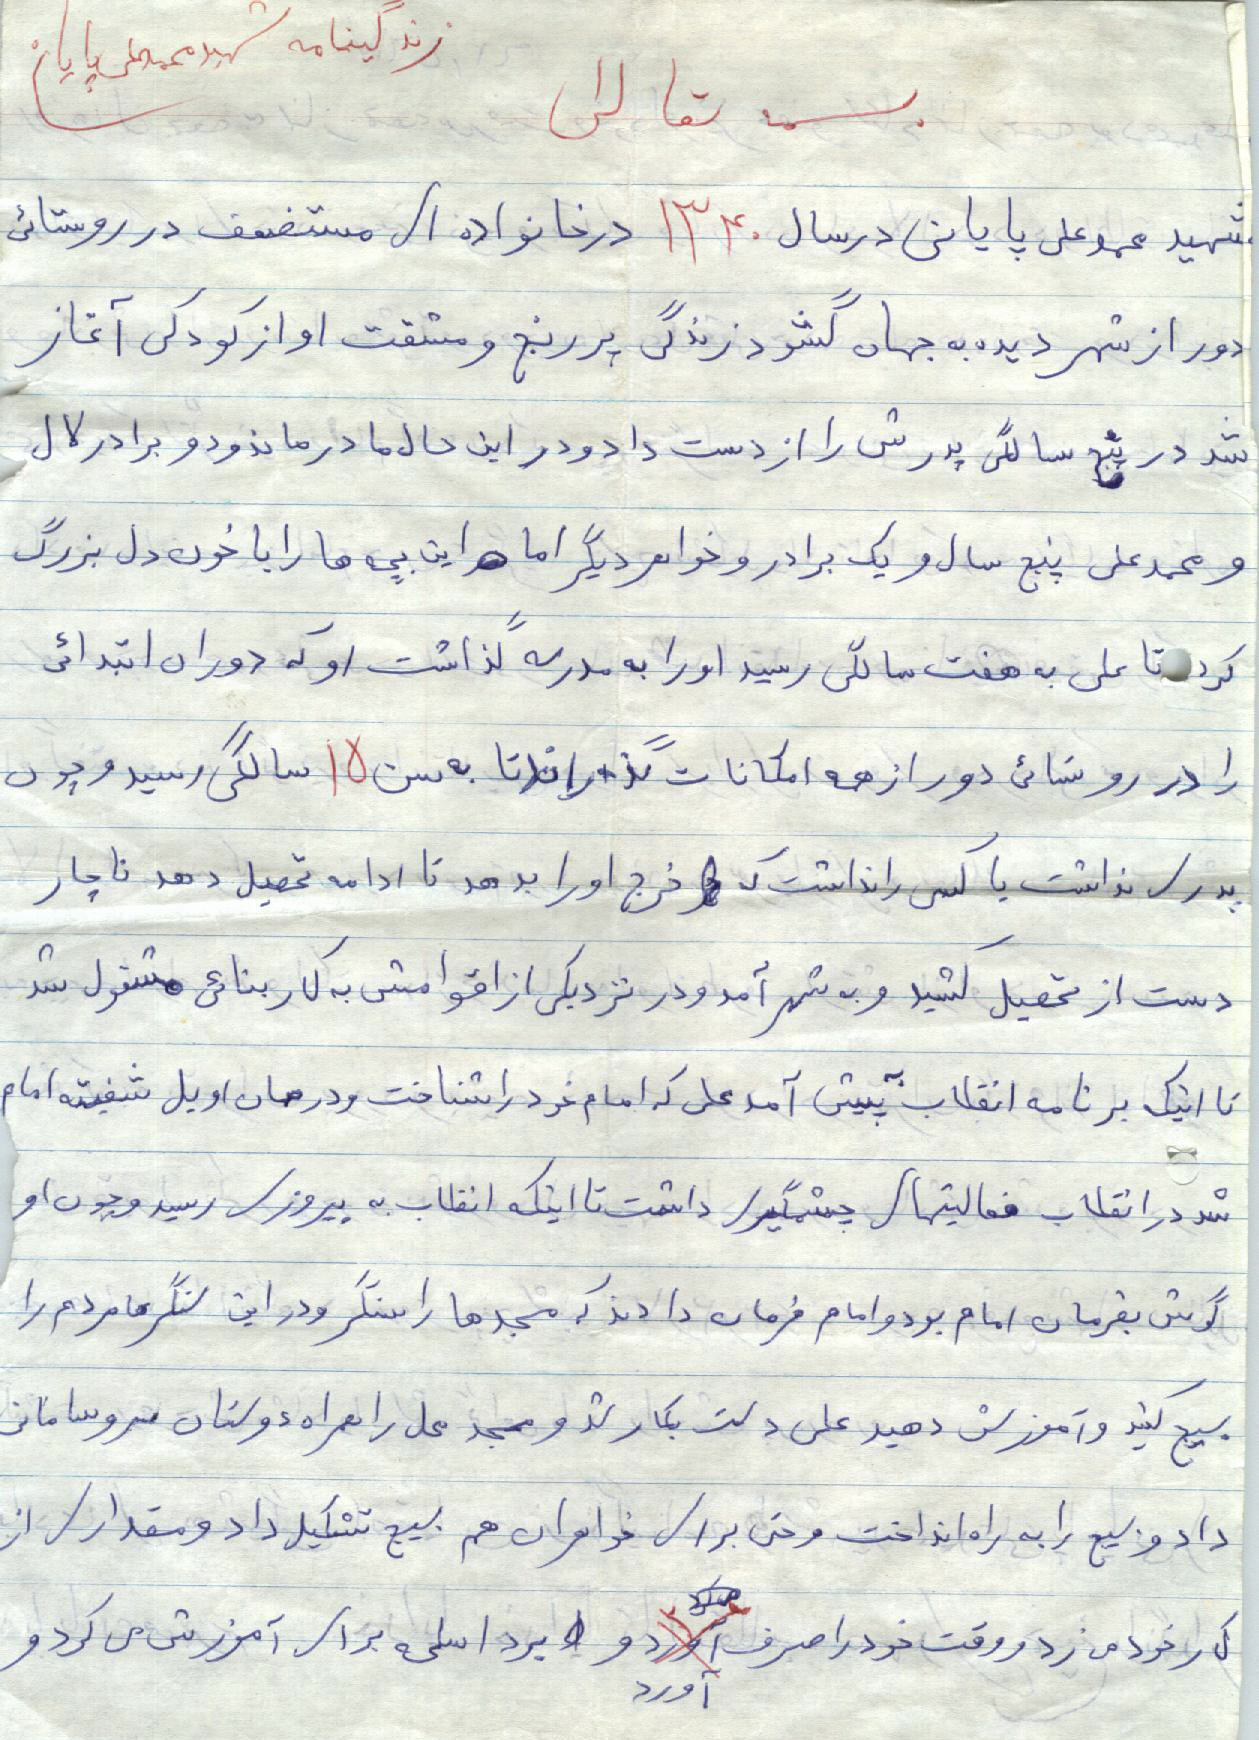 زندگینامه شهید محمدعلی پایانی
بسمه تعالی
شهید محمد علی پایانی در سال ۱۳۴۰ در خانواده ای مستضعف در روستائی
دور از شهر دیده به جهان گشود زندگی پر رنج و مشقت او از کودکی آغاز
شد در پنج سالگی پدرش را از دست داد و در این حال مادر ماند و دو برادر لال
و محمد علی پنج سال و یک برادر و خواهر دیگر اما این بچه ها را با خون دل بزرگ
کرد تا علی به هفت سالگی رسید او را به مدرسه گذاشت او که دوران ابتدائی
را در روستائی دور از همه امکانات گذراند تا به سن ۱۵ سالگی رسید و چون
پدری نداشت یا کسی را نداشت که خرج او را بدهد تا ادامه تحصیل دهد ناچار
دست از تحصیل کشید و به شهر آمد و در نزدیکی از اقوامش به کار بنائی مشغول شد
تا اینک برنامه انقلاب پیش آمد علی که امام خود را شناخت و در همان اویل شیفته امام
شد در انقلاب فعالیتهای چشمگیری داشت تا اینکه انقلاب به پیروزی رسید و چون او
گوش بفرمان امام بود و امام فرمان دادند که مسجدها را سنگر و در این سنگرها مردم را
بسیج کنید و آموزش دهید علی دست بکار شد و مسجد محل را همراه دوستان سروسامانی
داد و بسیج را به راه انداخت و حتی برای خواهران هم بسیج تشکیل داد و مقداری از
کار خود می زد و وقت خود را صرف می کرد و برد اسلحه برای آموزش می کرد و
آورد